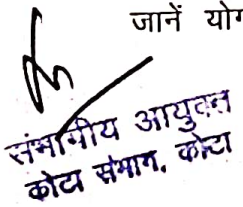 जानें योग
संभागीय आयुक्त
कोटा संभाग, कोटा